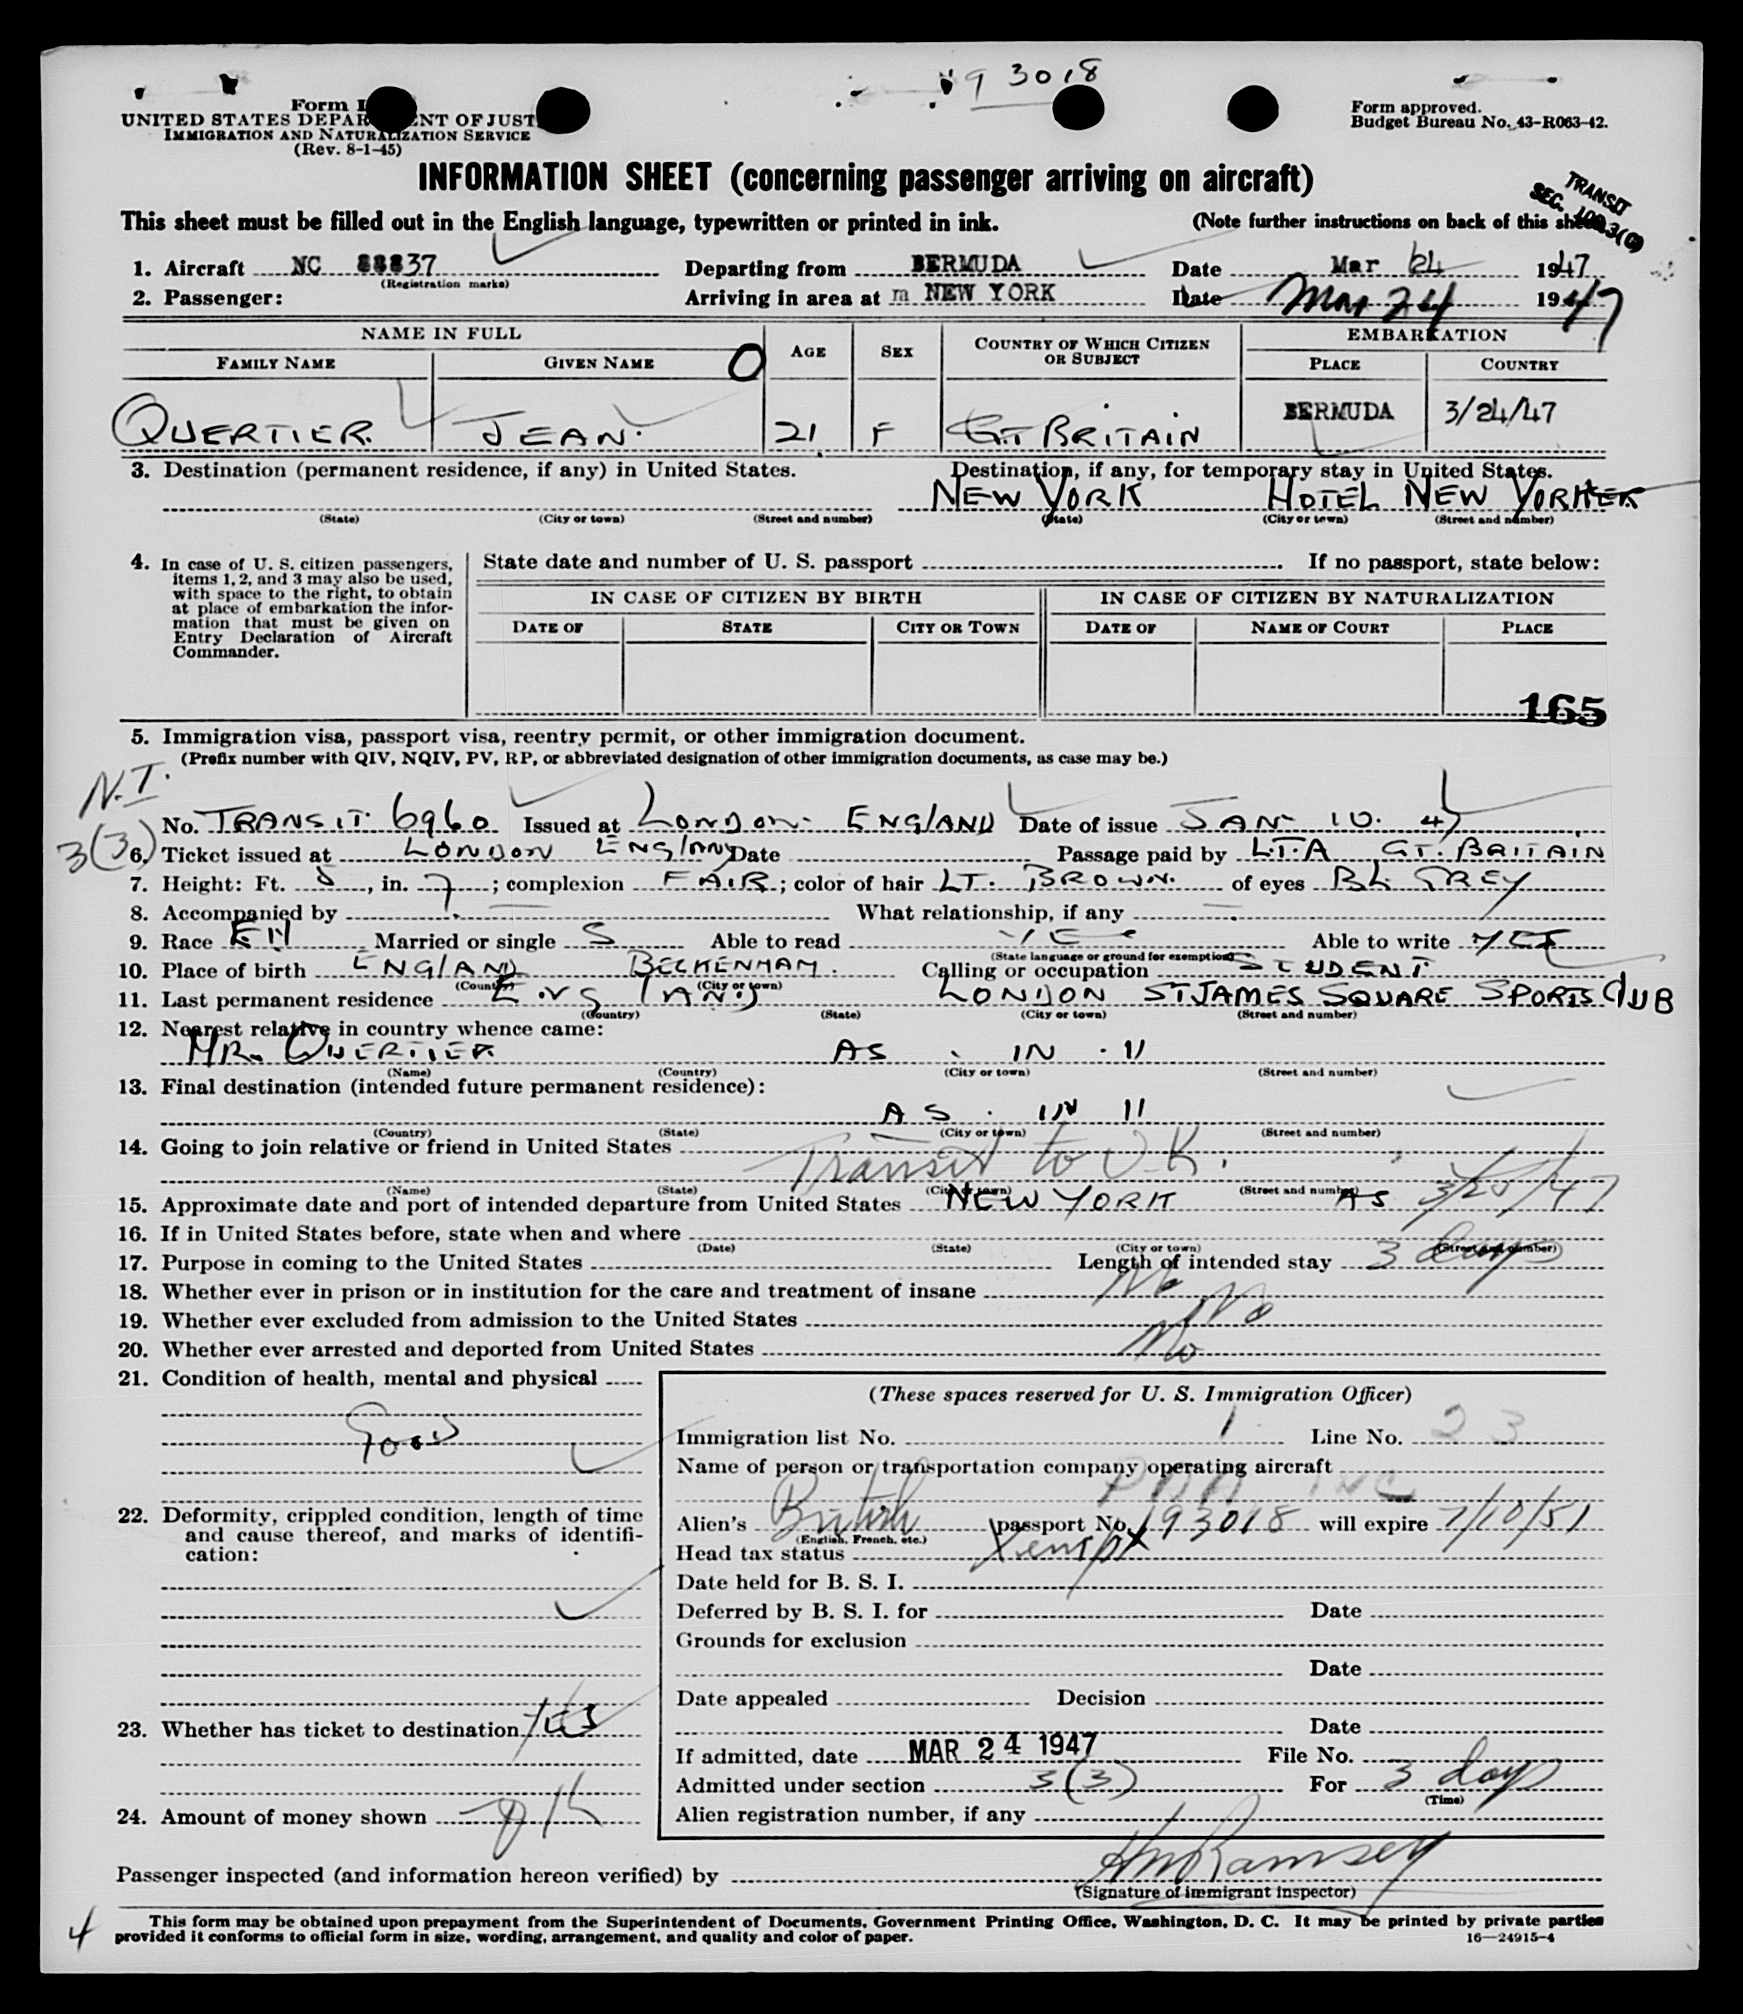 93018
Form I
UNITED STATES DEPAR ENT OF JUST
IMMIGRATION AND NATURALIZATION SERVICE
(Rev. 8-1-45)
Form approved.
Budget Bureau No. 43-R063-42.
INFORMATION SHEET (concerning passenger arriving on aircraft)
TRANSIT
SEC.
This sheet must be filled out in the English language, typewritten or printed in ink. (Note further instructions on back of this sheet)
1. Aircraft NC 88837 Departing from BERMUDA Date Mar 24 1947
(Registration marks)
2. Passenger: Arriving in area at NEW YORK Date Mar 24 1947
NAME IN FULL AGE SEX COUNTRY OF WHICH CITIZEN OR SUBJECT EMBARKATION
FAMILY NAME GIVEN NAME O PLACE COUNTRY
QUERTIER. JEAN. 21 F GT BRITAIN BERMUDA 3/24/47
3. Destination (permanent residence, if any) in United States. Destination, if any, for temporary stay in United States.
NEW YORK HOTEL NEW YORKER
(State) (City or town) (Street and number) (State) (City or town) (Street and number)
4. In case of U. S. citizen passengers, items 1, 2, and 3 may also be used, with space to the right, to obtain at place of embarkation the information that must be given on Entry Declaration of Aircraft Commander.
State date and number of U. S. passport If no passport, state below:
IN CASE OF CITIZEN BY BIRTH IN CASE OF CITIZEN BY NATURALIZATION
DATE OF STATE CITY OR TOWN DATE OF NAME OF COURT PLACE
165
5. Immigration visa, passport visa, reentry permit, or other immigration document.
(Prefix number with QIV, NQIV, PV, RP, or abbreviated designation of other immigration documents, as case may be.)
N.I.
No. TRANSIT 6960 Issued at LONDON. ENGLAND Date of issue JAN 10. 47
3(3)
6. Ticket issued at LONDON ENGLAND Date Passage paid by L.T.A GT. BRITAIN
7. Height: Ft. 5, in. 7; complexion FAIR; color of hair LT. BROWN. of eyes BL GREY
8. Accompanied by - What relationship, if any -
9. Race EN Married or single S Able to read YES Able to write YES
(State language or ground for exemption)
10. Place of birth ENGLAND BECKENHAM. Calling or occupation STUDENT
(Country) (City or town)
11. Last permanent residence ENGLAND LONDON ST JAMES SQUARE SPORTS CLUB
(Country) (State) (City or town) (Street and number)
12. Nearest relative in country whence came:
MR. QUERTIER AS IN 11
(Name) (Country) (City or town) (Street and number)
13. Final destination (intended future permanent residence):
AS IN 11
(Country) (State) (City or town) (Street and number)
14. Going to join relative or friend in United States
Transit to U.K.
(Name) (State) (City or town) (Street and number)
15. Approximate date and port of intended departure from United States NEW YORK AS 3/25/47
16. If in United States before, state when and where
(Date) (State) (City or town) (Street and number)
17. Purpose in coming to the United States Length of intended stay 3 days
18. Whether ever in prison or in institution for the care and treatment of insane No
19. Whether ever excluded from admission to the United States No
20. Whether ever arrested and deported from United States No
21. Condition of health, mental and physical
Good
22. Deformity, crippled condition, length of time and cause thereof, and marks of identification:
23. Whether has ticket to destination YES
24. Amount of money shown OK
(These spaces reserved for U. S. Immigration Officer)
Immigration list No. 1 Line No. 23
Name of person or transportation company operating aircraft
PAA INC
Alien's British passport No. 193018 will expire 7/10/51
(English, French, etc.)
Head tax status Xempt
Date held for B. S. I.
Deferred by B. S. I. for Date
Grounds for exclusion
Date
Date appealed Decision
Date
If admitted, date MAR 24 1947 File No.
Admitted under section 3(3) For 3 days
(Time)
Alien registration number, if any
Passenger inspected (and information hereon verified) by HM Ramsey
(Signature of immigrant inspector)
4
This form may be obtained upon prepayment from the Superintendent of Documents, Government Printing Office, Washington, D. C. It may be printed by private parties
provided it conforms to official form in size, wording, arrangement, and quality and color of paper. 16—24915-4